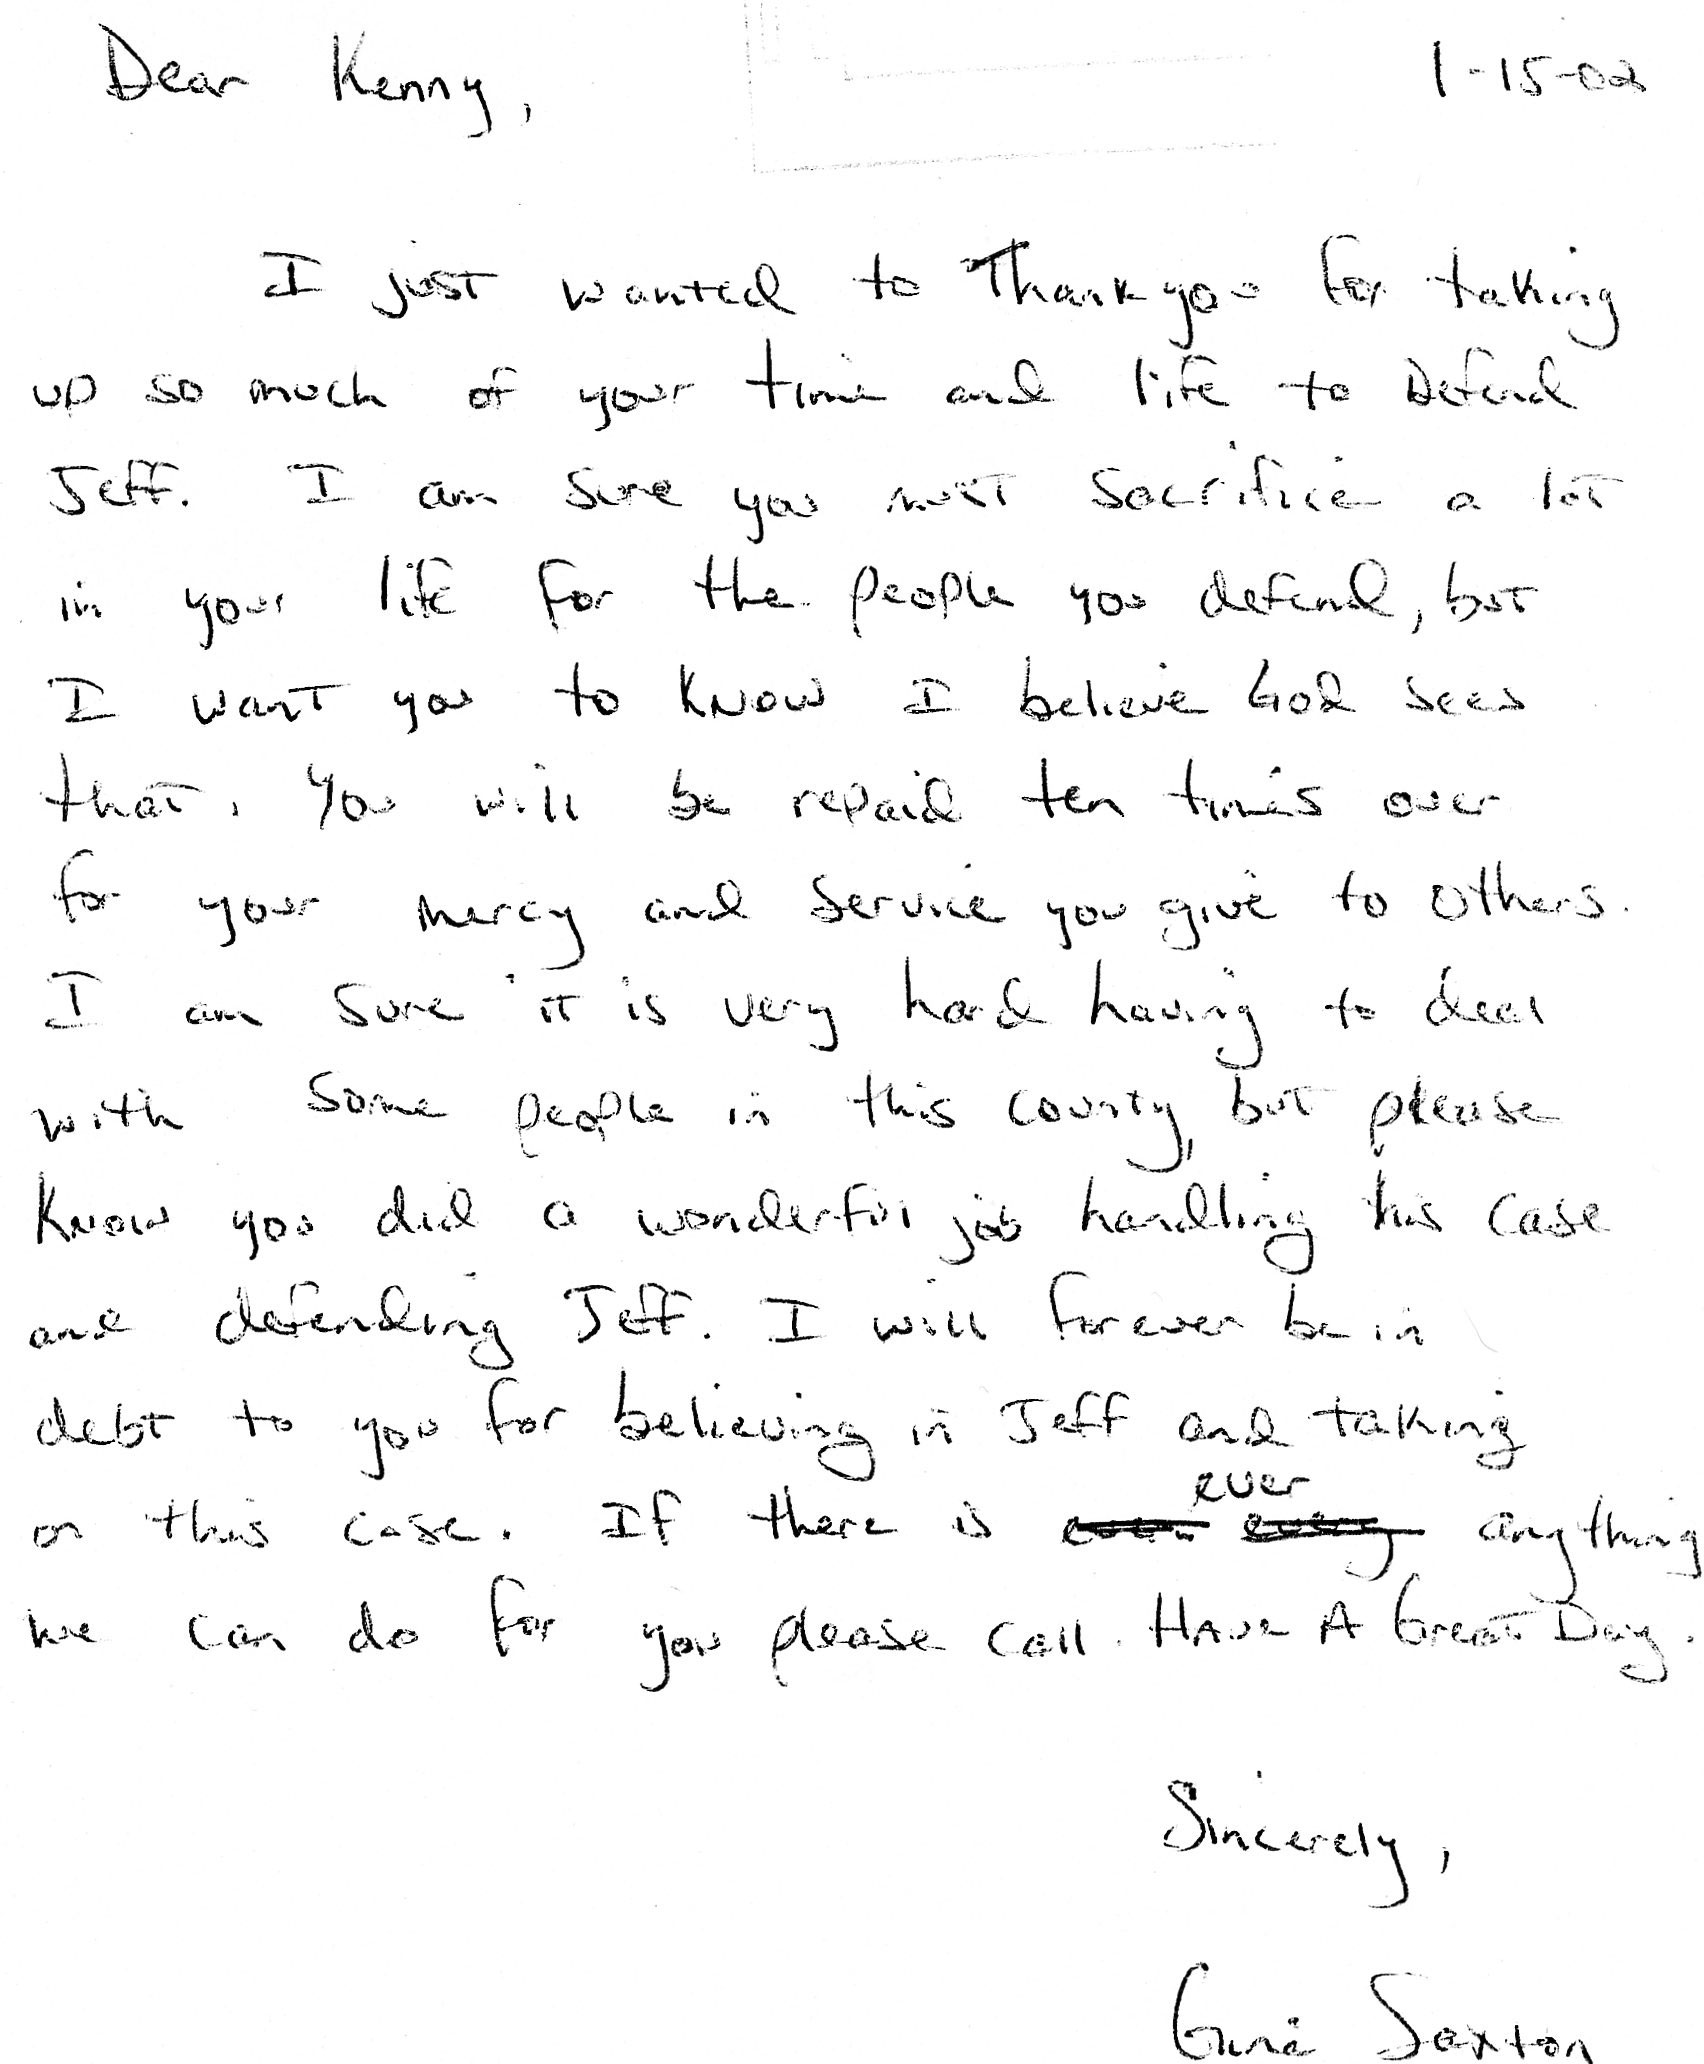 Dear Kenny, 1-15-02
I just wanted to Thank you for taking
up so much of your time and life to Defend
Jeff. I am sure you must sacrifice a lot
in your life for the people you defend, but
I want you to know I believe God sees
that. You will be repaid ten times over
for your mercy and service you give to others.
I am sure it is very hard having to deal
with some people in this county, but please
know you did a wonderful job handling this case
and defending Jeff. I will forever be in
debt to you for believing in Jeff and taking
ever
on this case. If there is even every anything
we can do for you please call. Have A Great Day.
Sincerely,
Saxton